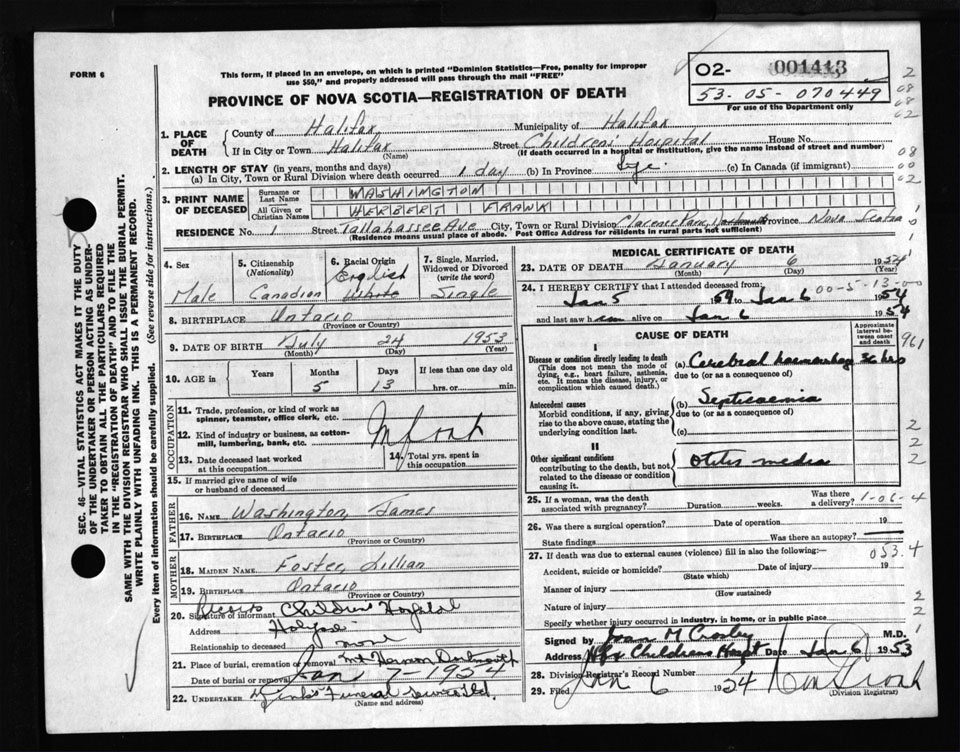 FORM 6
This form, if placed in an envelope, on which is printed "Dominion Statistics—Free, penalty for improper
use $50," and properly addressed will pass through the mail "FREE"
O2- 001413
53-05-070449
For use of the Department only
PROVINCE OF NOVA SCOTIA—REGISTRATION OF DEATH
2
08
08
02
08
00
02
1. PLACE OF DEATH
County of Halifax, Municipality of Halifax
If in City or Town Halifax Street Childrens Hospital House No.
(Name) (If death occurred in a hospital or institution, give the name instead of street and number)
2. LENGTH OF STAY (in years, months and days)
(a) In City, Town or Rural Division where death occurred 1 day (b) In Province (c) In Canada (if immigrant)
3. PRINT NAME OF DECEASED
Surname or Last Name WASHINGTON
All Given or Christian Names HERBERT FRANK
RESIDENCE No. 1 Street Tallahassee Ave City, Town or Rural Division Clarence Park, Dartmouth Province Nova Scotia
(Residence means usual place of abode. Post Office Address for residents in rural parts not sufficient)
4. Sex
Male
5. Citizenship
(Nationality)
Canadian
6. Racial Origin
English
White
7. Single, Married,
Widowed or Divorced
(write the word)
Single
8. BIRTHPLACE Ontario
(Province or Country)
9. DATE OF BIRTH July 24 1953
(Month) (Day) (Year)
10. AGE in Years Months Days If less than one day old
5 13 hrs. or min.
OCCUPATION
11. Trade, profession, or kind of work as
spinner, teamster, office clerk, etc.
12. Kind of industry or business, as cotton-
mill, lumbering, bank, etc.
13. Date deceased last worked
at this occupation
14. Total yrs. spent in
this occupation
15. If married give name of wife
or husband of deceased
FATHER
16. NAME Washington, James
17. BIRTHPLACE Ontario
(Province or Country)
MOTHER
18. MAIDEN NAME Foster, Lillian
19. BIRTHPLACE Ontario
(Province or Country)
20. Signature of informant Records Childrens Hospital
Address Halifax
Relationship to deceased none
21. Place of burial, cremation or removal Mt Hermon Dartmouth
Date of burial or removal Jan 7 1954
22. UNDERTAKER Funeral Service Ltd.
(Name and address)
MEDICAL CERTIFICATE OF DEATH
23. DATE OF DEATH January 6 1954
(Month) (Day) (Year)
24. I HEREBY CERTIFY that I attended deceased from:
00-5-13-00
Jan 5 1954 to Jan 6 1954
and last saw him alive on Jan 6 1954
CAUSE OF DEATH
Approximate
interval be-
tween onset
and death
961
I
Disease or condition directly leading to death
(This does not mean the mode of
dying, e.g., heart failure, asthenia,
etc. It means the disease, injury, or
complication which caused death.)
(a) Cerebral haemorrhage 36 hrs
due to (or as a consequence of)
Antecedent causes
Morbid conditions, if any, giving
rise to the above cause, stating the
underlying condition last.
(b) Septicaemia
due to (or as a consequence of)
(c)
II
Other significant conditions
contributing to the death, but not
related to the disease or condition
causing it.
Otitis media
2
2
2
25. If a woman, was the death
associated with pregnancy? Duration weeks. Was there a delivery?
1-06-4
26. Was there a surgical operation? Date of operation 19
State findings Was there an autopsy?
053.4
27. If death was due to external causes (violence) fill in also the following:—
Accident, suicide or homicide? Date of injury 19
(State which)
Manner of injury
(How sustained)
Nature of injury
2
2
Specify whether injury occurred in industry, in home, or in public place
Signed by Joan M Crosby M.D.
Address Hfx Childrens Hospt Date Jan 6 1953
28. Division Registrar's Record Number
29. Filed Jan 6 1954
(Division Registrar)
SEC. 46—VITAL STATISTICS ACT MAKES IT THE DUTY
OF THE UNDERTAKER OR PERSON ACTING AS UNDER-
TAKER TO OBTAIN ALL THE PARTICULARS REQUIRED
IN THE "REGISTRATION OF DEATH" AND TO FILE THE
SAME WITH THE DIVISION REGISTRAR WHO SHALL ISSUE THE BURIAL PERMIT.
WRITE PLAINLY WITH UNFADING INK. THIS IS A PERMANENT RECORD.
Every item of information should be carefully supplied. (See reverse side for instructions.)